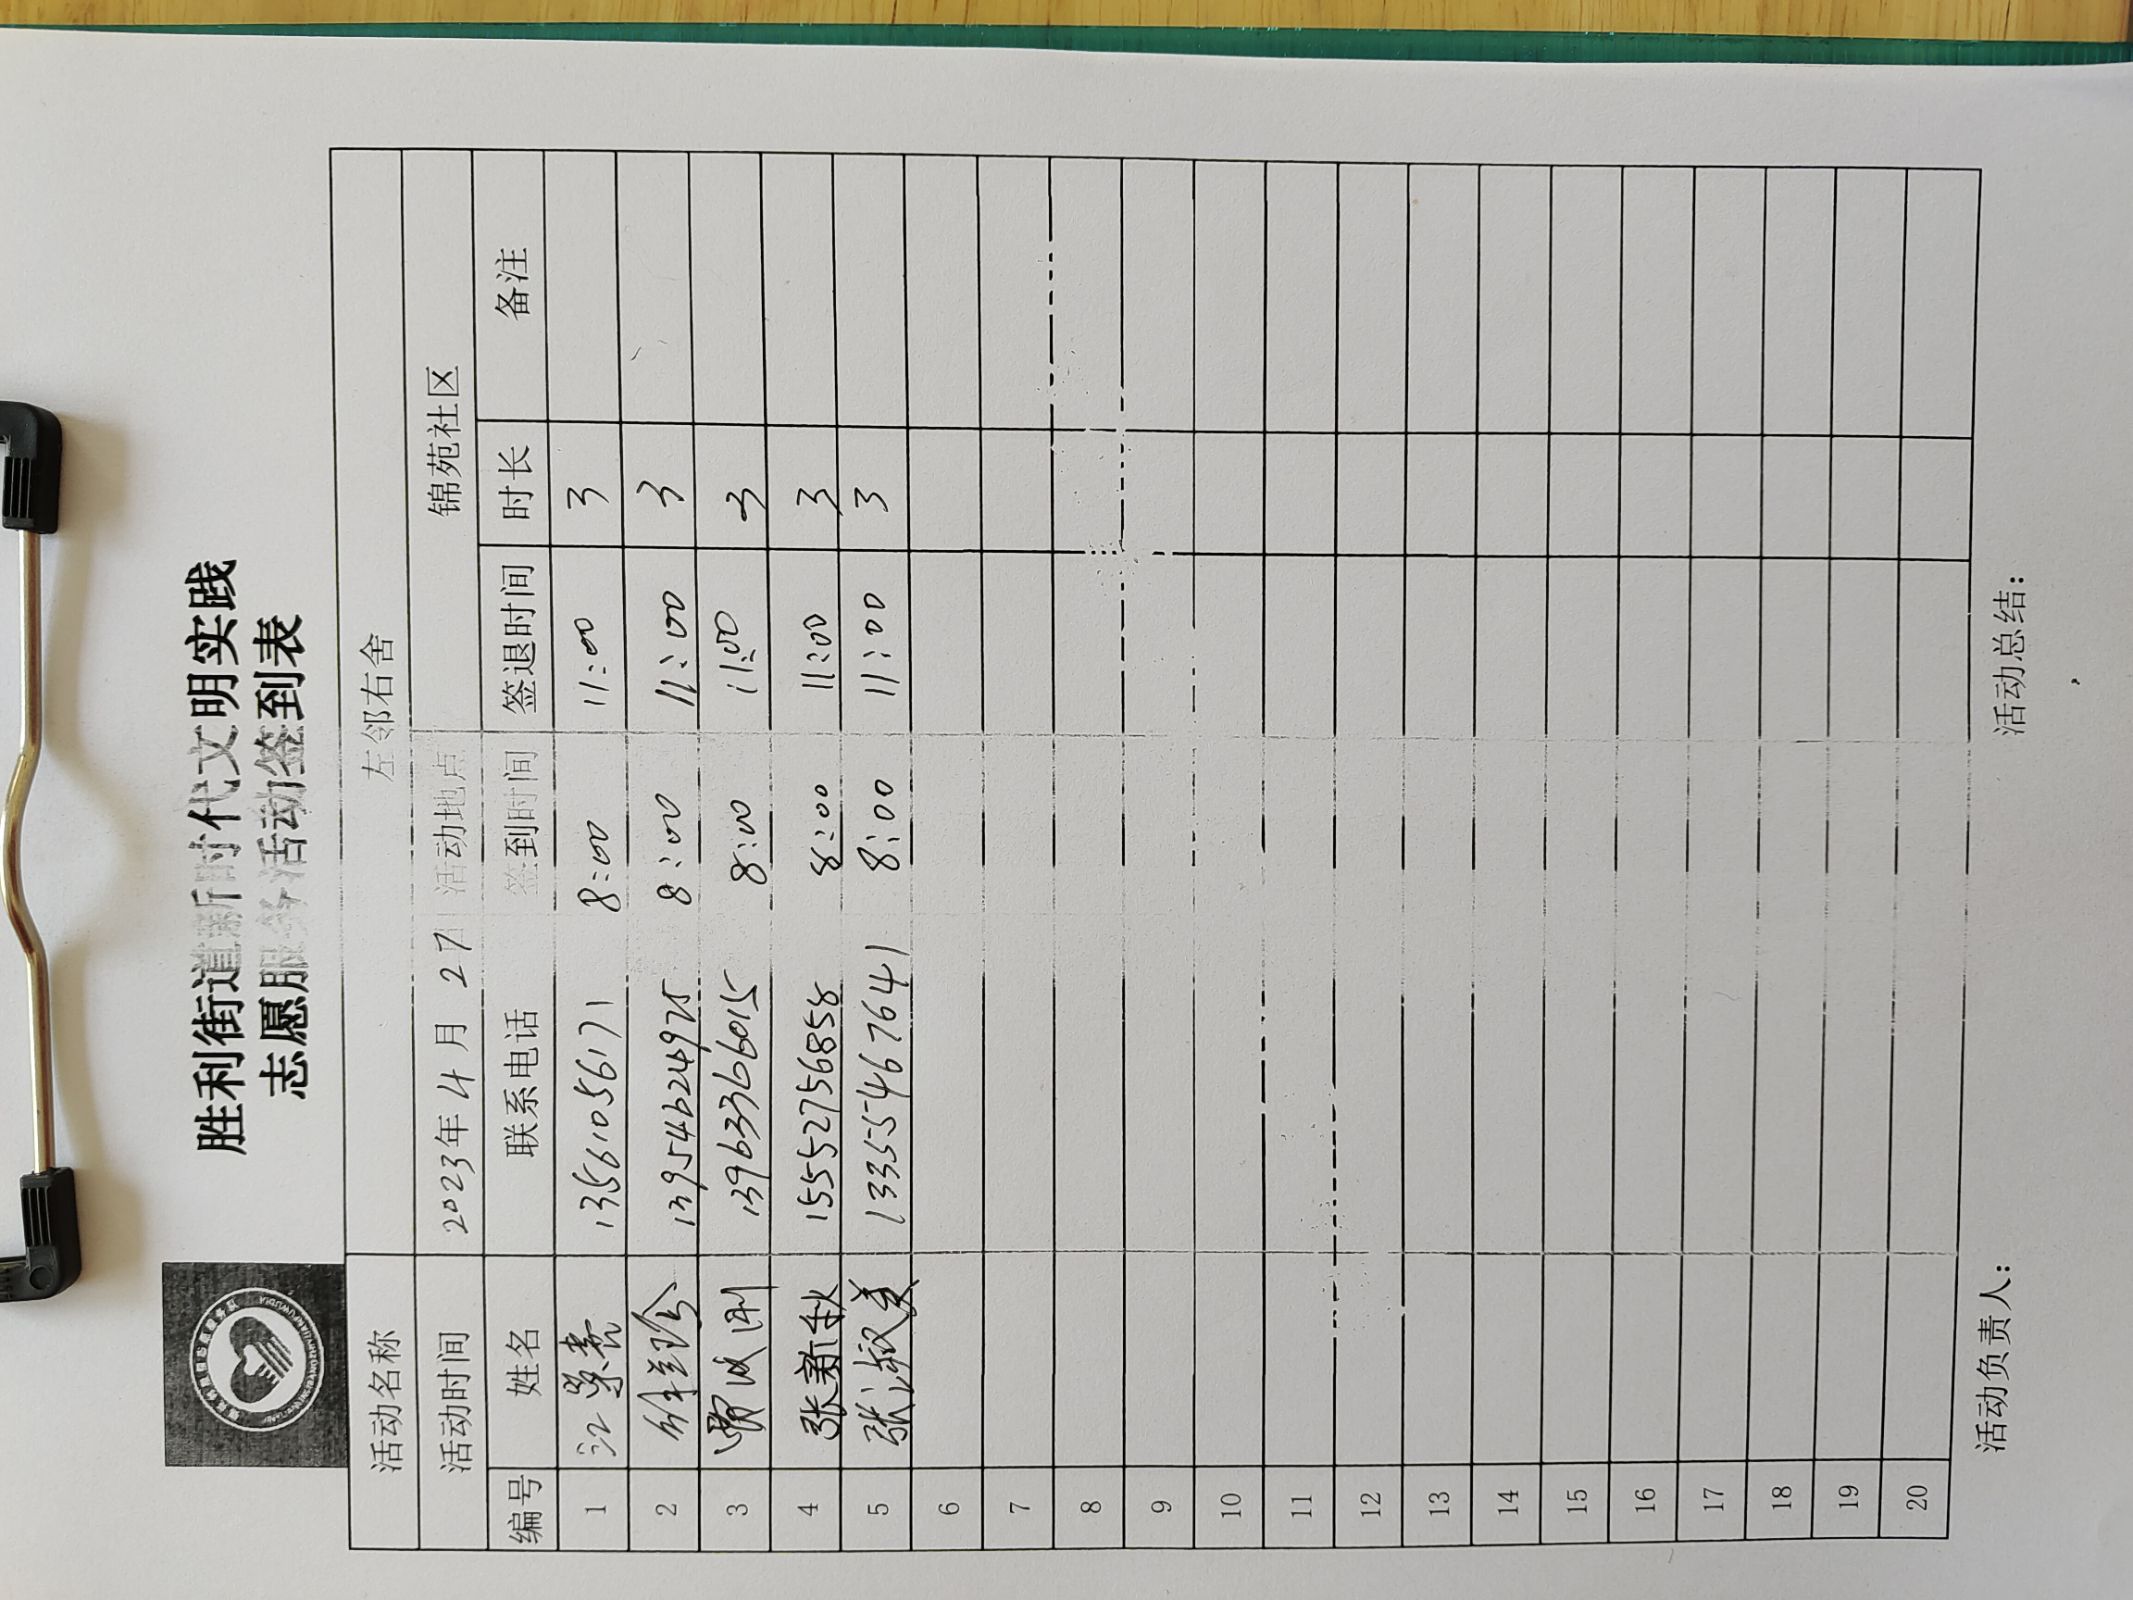 胜利街道新时代文明实践
志愿服务活动签到表
活动名称 左邻右舍
活动时间 2023年4月27日 活动地点 锦苑社区
编号 姓名 联系电话 签到时间 签退时间 时长 备注
1 江荣 13561056171 8:00 11:00 3
2 徐兰珍 13954624975 8:00 11:00 3
3 贾成刚 13963366015 8:00 11:00 3
4 张新秋 15552756858 8:00 11:00 3
5 张淑美 13355467641 8:00 11:00 3
6
7
8
9
10
11
12
13
14
15
16
17
18
19
20
活动负责人: 活动总结: